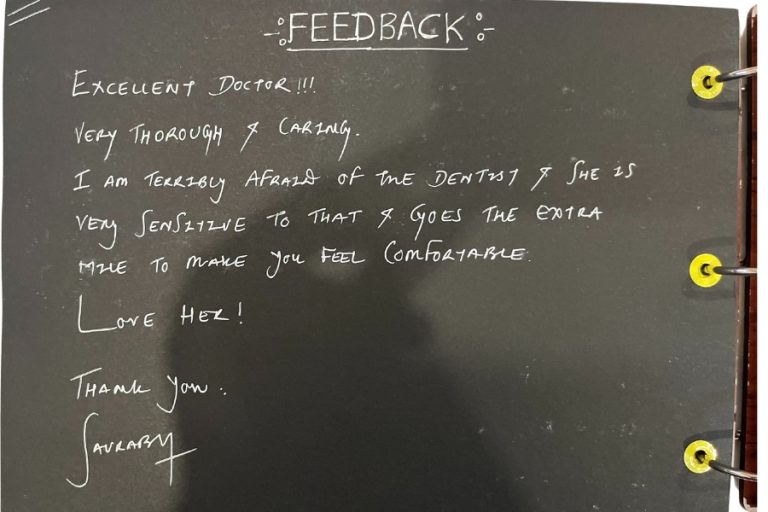 FEEDBACK
EXCELLENT DOCTOR!!!
VERY THOROUGH & CARING.
I AM TERRIBLY AFRAID OF THE DENTIST & SHE IS
VERY SENSITIVE TO THAT & GOES THE EXTRA
MILE TO MAKE YOU FEEL COMFORTABLE.
LOVE HER!
THANK YOU.